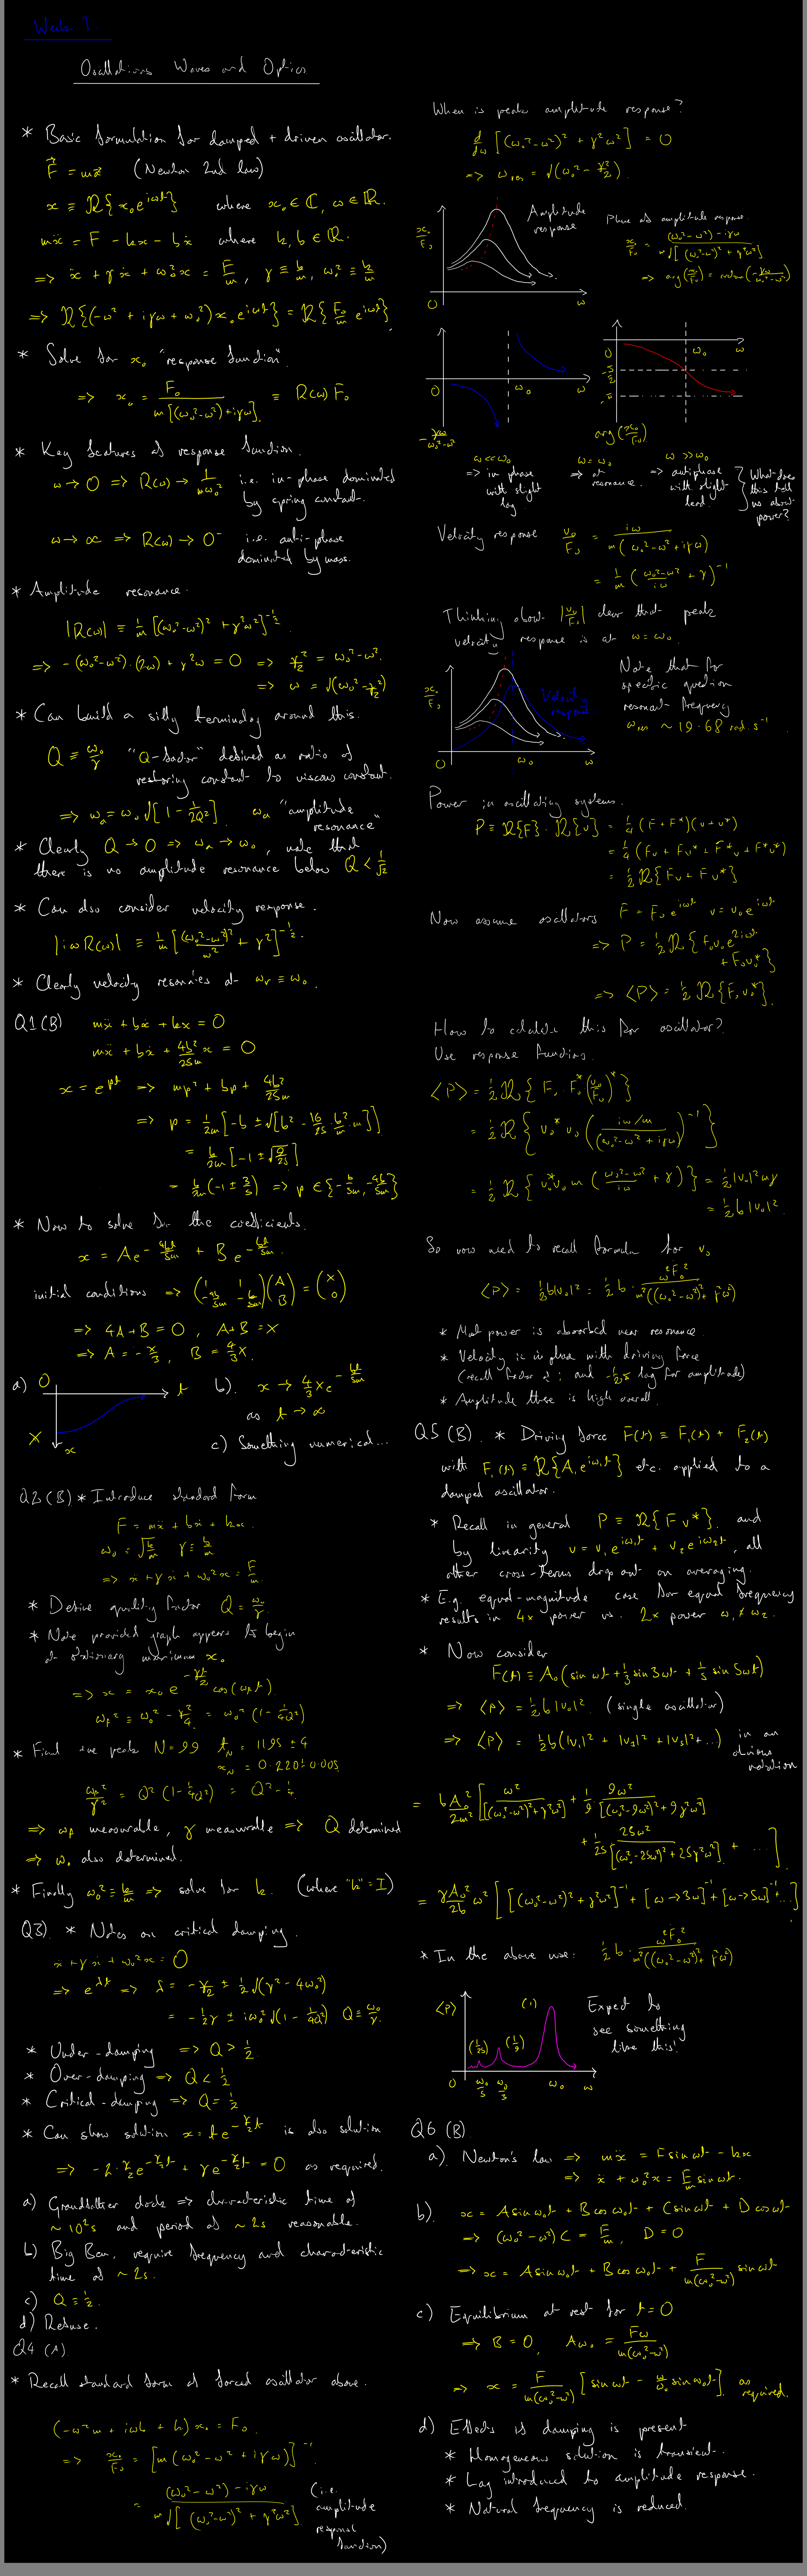 Week 1.
Oscillations Waves and Optics
* Basic formulation for damped + driven oscillator.
F = mẍ (Newton 2nd law)
x ≡ ℜ{x₀e^{iωt}} where x₀ ∈ ℂ, ω ∈ ℝ.
mẍ = F - kx - bẋ where k, b ∈ ℝ.
=> ẍ + γẋ + ω₀²x = F/m, γ ≡ b/m, ω₀² ≡ k/m
=> ℜ{(-ω² + iγω + ω₀²)x₀e^{iωt}} = ℜ{F₀/m e^{iωt}}
* Solve for x₀ "response function".
=> x₀ = F₀/(m[(ω₀²-ω²)+iγω]) ≡ R(ω)F₀
* Key features of response function.
ω → 0 => R(ω) → 1/(mω₀²) i.e. in-phase dominated
by spring constant.
ω → ∞ => R(ω) → 0⁻ i.e. anti-phase
dominated by mass.
* Amplitude resonance.
|R(ω)| ≡ 1/m [(ω₀²-ω²)² + γ²ω²]^{-1/2}
=> -(ω₀²-ω²)·(2ω) + γ²ω = 0 => γ²/2 = ω₀²-ω².
=> ω = √(ω₀²-γ²/2)
* Can build a silly terminology around this.
Q ≡ ω₀/γ "Q-factor" defined as ratio of
restoring constant to viscous constant.
=> ωₐ = ω₀√[1 - 1/2Q²] ωₐ "amplitude
resonance"
* Clearly Q → 0 => ωₐ → ω₀, note that
there is no amplitude resonance below Q < 1/√2
* Can also consider velocity response.
|iωR(ω)| ≡ 1/m [(ω₀²-ω²)²/ω² + γ²]^{-1/2}
* Clearly velocity resonates at ωᵥ ≡ ω₀.
Q1 (B) mẍ + bẋ + kx = 0
mẍ + bẋ + 4b²/25m x = 0
x = e^{pt} => mp² + bp + 4b²/25m
=> p = 1/2m [-b ± √[b² - 16/25·b²/m·m]]
= b/2m [-1 ± √(9/25)]
= b/2m (-1 ± 3/5) => p ∈ {-b/5m, -4b/5m}
* Now to solve for the coefficients.
x = Ae^{-4bt/5m} + Be^{-bt/5m}
initial conditions => (1 1; -4b/5m -b/5m)(A; B) = (X; 0)
=> 4A + B = 0, A + B = X
=> A = -X/3, B = 4/3 X.
a) 0 t X x
b). x → 4/3 X e^{-bt/5m}
as t → ∞
c) Something numerical...
Q2 (B) * Introduce standard form
F = mẍ + bẋ + kx.
ω₀ = √(k/m) γ ≡ b/m
=> ẍ + γẋ + ω₀²x = F/m.
* Define quality factor Q = ω₀/γ
* Note provided graph appears to begin
at stationary maximum x₀
=> x = x₀e^{-γt/2} cos(ω_f t)
ω_f² ≡ ω₀² - γ²/4 = ω₀²(1 - 1/4Q²)
* Find +ve peak N = 99 t_N = 1195 ± 4
x_N = 0.220 ± 0.005
ω_f²/γ² = Q²(1 - 1/4Q²) = Q² - 1/4.
=> ω_f measurable, γ measurable => Q determined
=> ω₀ also determined.
* Finally ω₀² ≡ k/m => solve for k. (where "k" = I)
Q3). * Notes on critical damping.
ẍ + γẋ + ω₀²x = 0
=> e^{λt} => λ = -γ/2 ± 1/2√(γ² - 4ω₀²)
= -1/2γ ± iω₀²√(1 - 1/4Q²) Q ≡ ω₀/γ.
* Under-damping => Q > 1/2
* Over-damping => Q < 1/2
* Critical-damping => Q = 1/2
* Can show solution x = te^{-γ/2 t} is also solution
=> -2·γ/2 e^{-γ/2 t} + γe^{-γ/2 t} = 0 as required.
a) Grandfather clock => characteristic time of
~ 10²s and period of ~ 2s reasonable.
b) Big Ben, require frequency and characteristic
time of ~ 2s.
c) Q = 1/2.
d) Refuse.
Q4 (A)
* Recall standard form of forced oscillator above.
(-ω²m + iωb + k)x₀ = F₀.
=> x₀/F₀ = [m(ω₀² - ω² + iγω)]^{-1}
= ((ω₀²-ω²) - iγω)/(m√[(ω₀²-ω²)² + γ²ω²]) (i.e.
amplitude
response
function)
When is peak amplitude response?
d/dω [(ω₀²-ω²)² + γ²ω²] = 0
=> ω_res = √(ω₀² - γ²/2).
x₀/F₀ Amplitude
response
0 ω
Phase of amplitude response.
x₀/F₀ = ((ω₀²-ω²) - iγω)/(m√[(ω₀²-ω²)² + γ²ω²])
=> arg(x₀/F₀) = arctan(-γω/(ω₀²-ω²))
0 ω₀ ω
-γω/(ω₀²-ω²)
0 ω₀ ω
-π/2
-π
arg(x₀/F₀)
ω << ω₀ ω = ω₀ ω >> ω₀
=> in phase
with slight
lag
=> at
resonance.
=> antiphase
with slight
lead.
What does
this tell
us about
power?
Velocity response v₀/F₀ = iω/(m(ω₀²-ω²+iγω))
= 1/m ((ω₀²-ω²)/iω + γ)^{-1}
Thinking about |v₀/F₀| clear that peak
velocity response is at ω = ω₀.
x₀/F₀ Velocity
response
0 ω₀ ω
Note that for
specific question
resonant frequency
ω_res ~ 19.68 rad.s⁻¹
Power in oscillating systems.
P ≡ ℜ{F}·ℜ{v} = 1/4 (F+F*)(v+v*)
= 1/4 (Fv + Fv* + F*v + F*v*)
= 1/2 ℜ{Fv + Fv*}
Now assume oscillators F = F₀e^{iωt} v = v₀e^{iωt}
=> P = 1/2 ℜ{F₀v₀e^{2iωt}
+ F₀v₀*}
=> ⟨P⟩ = 1/2 ℜ{F₀v₀*}.
How to calculate this for oscillator?
Use response function.
⟨P⟩ = 1/2 ℜ{F₀·F₀*(v₀/F₀)*}
= 1/2 ℜ{v₀*v₀((iω/m)/(ω₀²-ω²+iγω))^{-1}}
= 1/2 ℜ{v₀*v₀m((ω₀²-ω²)/iω + γ)} = 1/2|v₀|²mγ
= 1/2 b|v₀|².
So now need to recall formula for v₀
⟨P⟩ = 1/2 b|v₀|² = 1/2 b·ω²F₀²/(m²((ω₀²-ω²)² + γ²ω²))
* Most power is absorbed near resonance.
* Velocity is in phase with driving force
(recall factor of i and -1/2π lag for amplitude)
* Amplitude there is high overall.
Q5 (B). * Driving force F(t) ≡ F₁(t) + F₂(t)
with F₁(t) = ℜ{A₁e^{iω₁t}} etc. applied to a
damped oscillator.
* Recall in general P ≡ ℜ{Fv*}. and
by linearity v = v₁e^{iω₁t} + v₂e^{iω₂t}, all
other cross-terms drop out on averaging.
* E.g. equal-magnitude case for equal frequency
results in 4x power vs. 2x power ω₁ ≠ ω₂.
* Now consider
F(t) ≡ A₀(sin ωt + 1/3 sin 3ωt + 1/5 sin 5ωt)
=> ⟨P⟩ = 1/2 b|v₀|². (single oscillator)
=> ⟨P⟩ = 1/2 b(|v₁|² + |v₃|² + |v₅|² + ...) in an
obvious
notation
= bA₀²/2m² [ω²/[(ω₀²-ω²)²+γ²ω²] + 1/9 · 9ω²/[(ω₀²-9ω²)²+9γ²ω²]
+ 1/25 · 25ω²/[(ω₀²-25ω²)²+25γ²ω²] + ...]
= γA₀²/2b ω² [[(ω₀²-ω²)²+γ²ω²]^{-1} + [ω→3ω]^{-1} + [ω→5ω]^{-1} + ...]
* In the above use: 1/2 b·ω²F₀²/(m²((ω₀²-ω²)² + γ²ω²))
⟨P⟩ (1/25) (1/9) (1)
0 ω₀/5 ω₀/3 ω₀ ω
Expect to
see something
like this!
Q6 (B)
a). Newton's law => mẍ = F sin ωt - kx
=> ẍ + ω₀²x = F/m sin ωt.
b). x = A sin ω₀t + B cos ω₀t + C sin ωt + D cos ωt
=> (ω₀² - ω²)C = F/m, D = 0
=> x = A sin ω₀t + B cos ω₀t + F/(m(ω₀²-ω²)) sin ωt
c) Equilibrium at rest for t = 0
=> B = 0, Aω₀ = Fω/(m(ω₀²-ω²))
=> x = F/(m(ω₀²-ω²)) [sin ωt - ω/ω₀ sin ω₀t] as
required.
d) Effects if damping is present
* Homogeneous solution is transient.
* Lag introduced to amplitude response.
* Natural frequency is reduced.